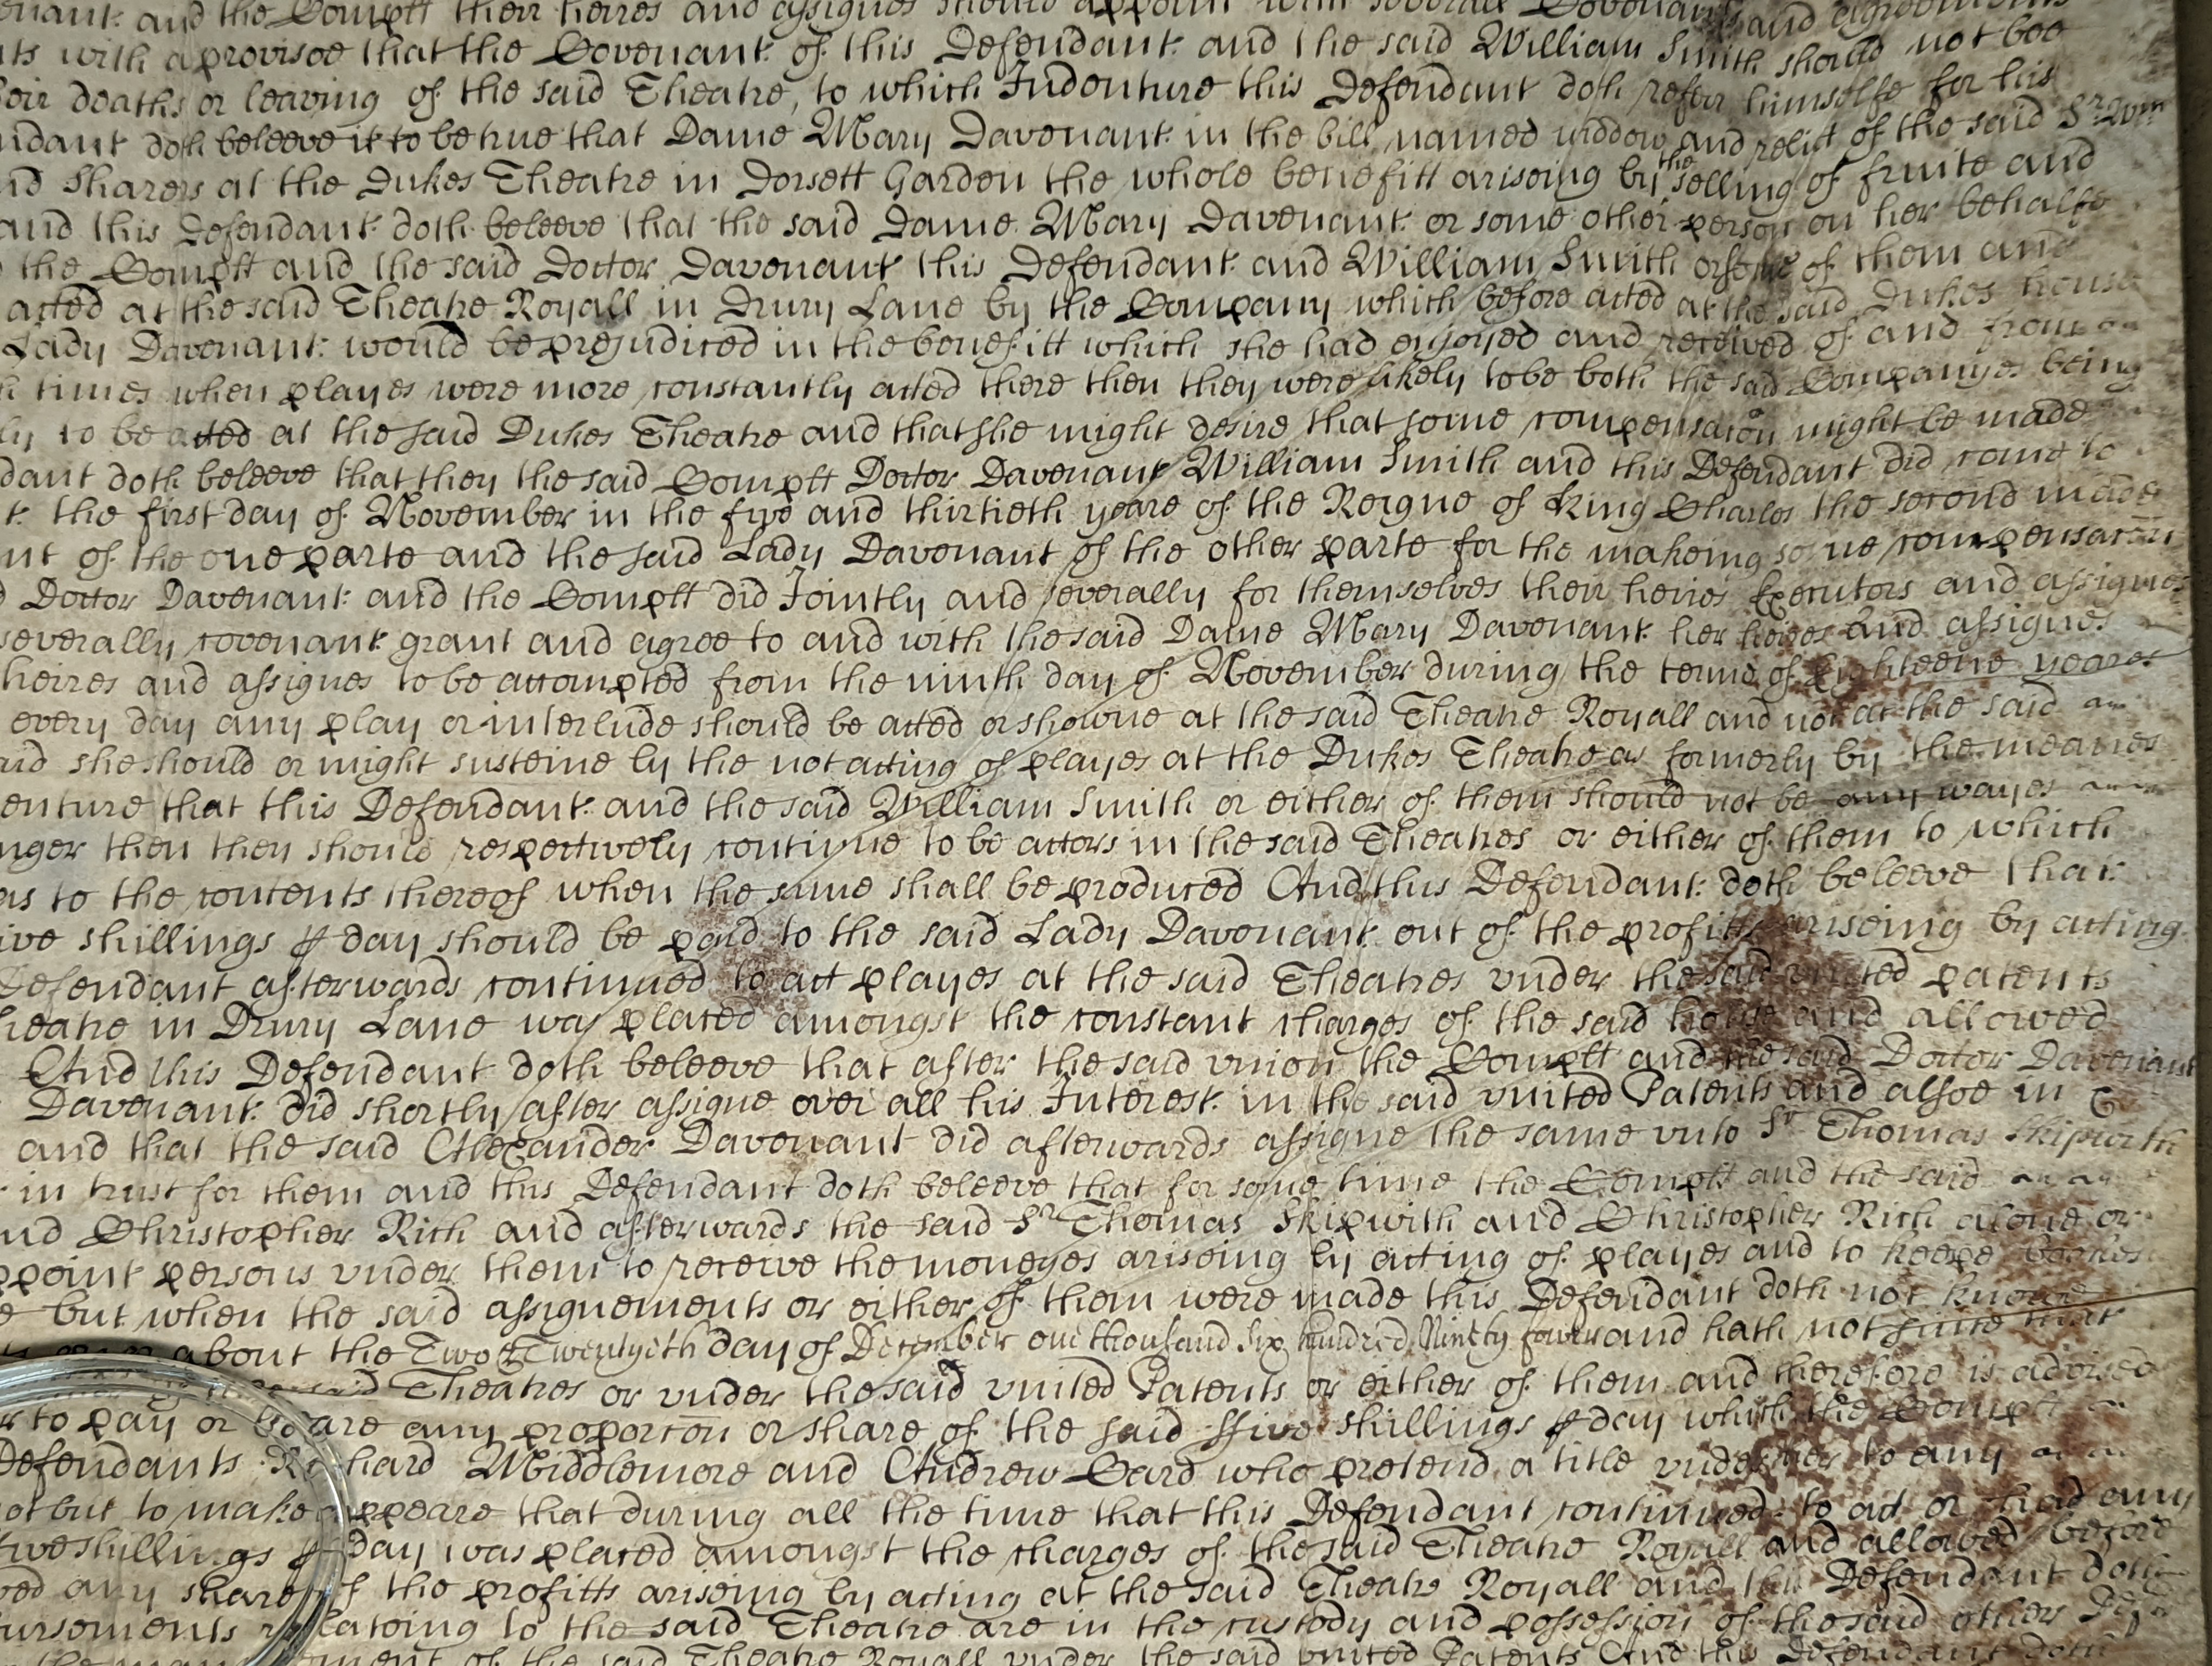 enant: and the Compltt their heires and assignes should appoint with severall Covenants and agreements
nts with a provisoe that the Covenant: of this Defendant: and the said William Smith should not bee
heir deaths or leaving of the said Theatre, to which Indenture this Defendant doth refer himselfe for his
ndant doth beleeve it to be true that Dame Mary Davenant: in the bill named widdow and relict of the said Sr: Wm
nd sharers at the Dukes Theatre in Dorsett Garden the whole benefitt ariseing by the selling of fruite and
and this Defendant: doth beleeve that the said Dame Mary Davenant: or some other person on her behalfe
the Compltt and the said Doctor Davenant this Defendant: and William Smith or some of them and
acted at the said Theatre Royall in Drury Lane by the Company which before acted at the said Dukes house
Lady Davenant: would be prejudiced in the benefitt which she had enjoyed and received of and from
times when playes were more constantly acted there then they were likely to be both the said Companyes being
ly to be acted at the said Dukes Theatre and that she might desire that some compensacon might be made
dant doth beleeve that they the said Compltt Doctor Davenant William Smith and this Defendant did come to
the first day of November in the five and thirtieth yeare of the Reigne of King Charles the second made
nt of the one parte and the said Lady Davenant of the other parte for the makeing some compensacon
Doctor Davenant: and the Compltt did Jointly and severally for themselves their heires Executors and assignes
severally covenant: grant and agree to and with the said Dame Mary Davenant: her heires and assignes
heires and assignes to be accompted from the ninth day of November during the terme of Eighteene yeares
every day any play or interlude should be acted or showne at the said Theatre Royall and not at the said
and she should or might susteine by the not acting of playes at the Dukes Theatre as formerly by the meanes
enture that this Defendant: and the said William Smith or either of them should not be any wayes
nger then they should respectively continue to be actors in the said Theatres or either of them to which
as to the contents thereof when the same shall be produced And this Defendant: doth beleeve that
ive shillings ꝑ day should be paid to the said Lady Davenant: out of the profitts ariseing by acting
Defendant afterwards continued to act playes at the said Theatres vnder the said vnited patents
heatre in Drury Lane was placed amongst the constant charges of the said house and allowed
And this Defendant doth beleeve that after the said vnion the Compltt and the said Doctor Davenant
Davenant: did shortly after assigne over all his Interest: in the said vnited Patents and alsoe in
and that the said Alexander Davenant did afterwards assigne the same vnto Sr Thomas Skipwith
in trust for them and this Defendant doth beleeve that for some time the Compltt and the said
nd Christopher Rich and afterwards the said Sr Thomas Skipwith and Christopher Rich alone or
ppoint persons vnder them to receive the moneyes ariseing by acting of playes and to keepe bookes
e but when the said assignements or either of them were made this Defendant doth not knowe
about the Two & Twentyeth day of December one thousand six hundred Ninety fower and hath not since that
said Theatres or vnder the said vnited Patents or either of them and therefore is advised
r to pay or beare any proporcon or share of the said ffive shillings ꝑ day which the Compltt
Defendants Richard Middlemore and Andrew Card who pretend a title vnder her to any
ot but to make appeare that during all the time that this Defendant continued to act or had any
ive shillings ꝑ day was placed amongst the charges of the said Theatre Royall and allowed before
ved any share of the profitts ariseing by acting at the said Theatre Royall and this Defendant doth
ursements relateing to the said Theatre are in the custody and possession of the said other
ment of the said Theatre Royall vnder the said vnited Patents And this Defendant doth